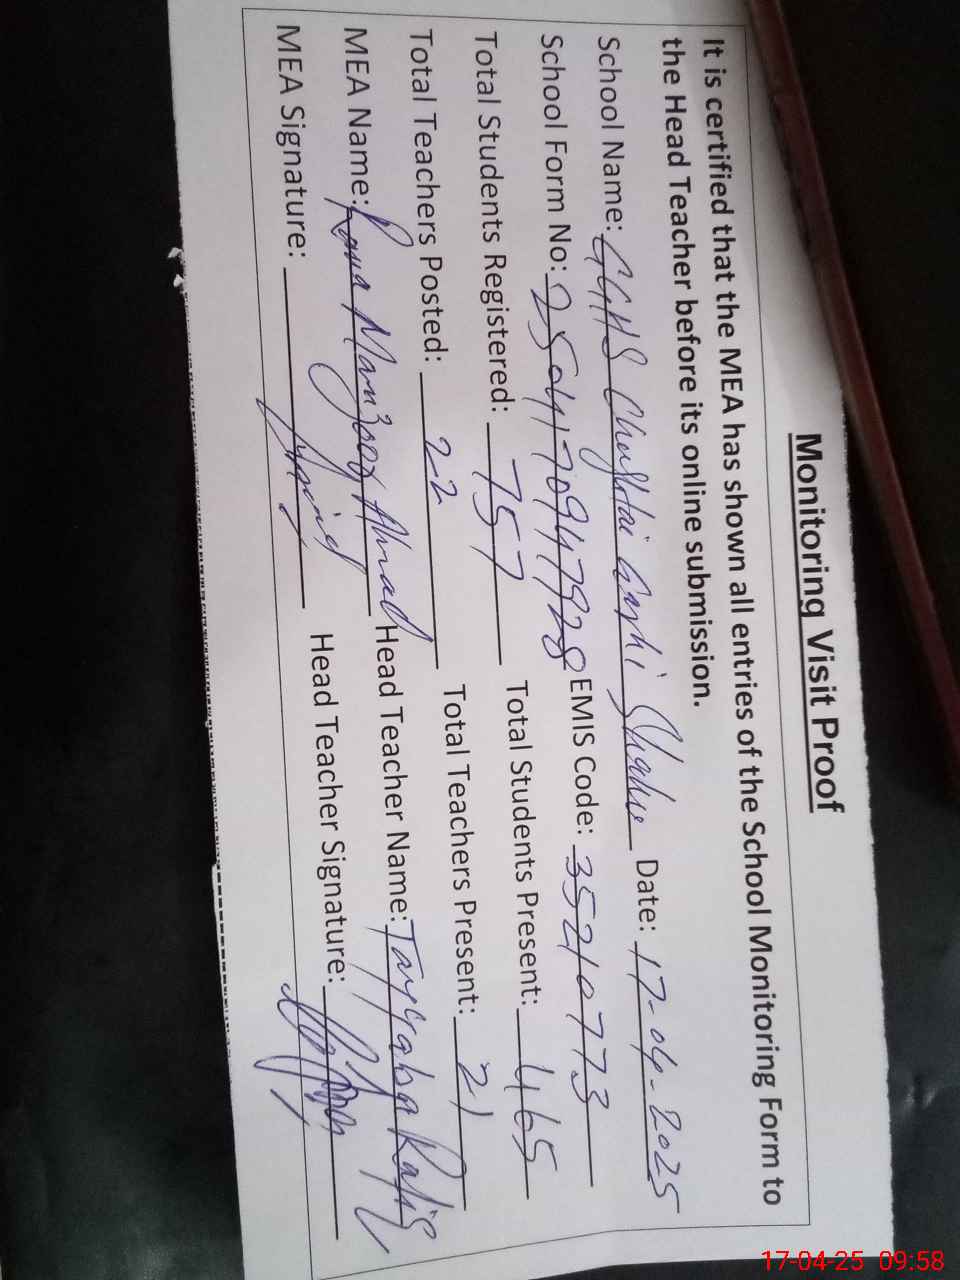 Monitoring Visit Proof
It is certified that the MEA has shown all entries of the School Monitoring Form to
the Head Teacher before its online submission.
School Name: GGHS Garhi Shahu Date: 17-04-2025
School Form No: EMIS Code: 35210773
Total Students Registered: 757 Total Students Present: 465
Total Teachers Posted: 22 Total Teachers Present: 21
MEA Name: Rana Manzoor Ahmad Head Teacher Name: Tayyaba Rafiq
MEA Signature: Head Teacher Signature:
17-04-25 09:58